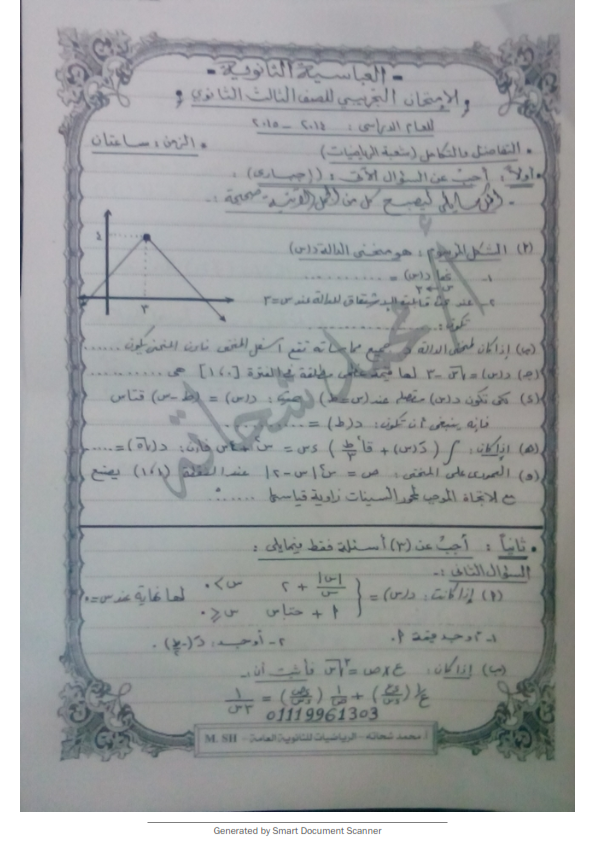 - العباسية الثانوية -
الامتحان التجريبي للصف الثالث الثانوي
للعام الدراسى : ٢٠١٤ - ٢٠١٥
• التفاضل والتكامل (شعبة الرياضيات) • الزمن : ساعتان
• أولاً : أجب عن السؤال الآتى : (إجبارى) :
- أكمل مايلى ليصبح كل من الجمل الآتية صحيحة :-
(٢) الشكل المرسوم : هو منحنى الدالة د(س)
١- نها د(س) = ............
س ← ٣
٢- عند بحث قابلية الاشتقاق للدالة عند س = ٣
تكون : ............
٤
٣
(ب) إذا كان لمنحنى الدالة جميع مماساته تقع أسفل المنحنى فإن المنحنى يكون ......
(جـ) د(س) = ٣ - لها قيمة عظمى مطلقة فى الفترة [١،٠] هى ..........
(د) لكى تكون د(س) متصلة عند (س = ط) حيث : د(س) = (ط - س) قتاس
فإنه ينبغى أن تكون : د(ط) = ............
(هـ) إذا كان : ∫ (د(س) + ) ءس = فإن : د() = ......
(و) العمودى على المنحنى : ص = س|س - ٢| عند النقطة (١،١) يصنع
مع الاتجاه الموجب لمحور السينات زاوية قياسها ........
• ثانياً : أجب عن (٣) أسئلة فقط فيمايلى :
السؤال الثانى :-
(٢) إذا كانت : د(س) = { |س|/س + ٢ س > ٠ لها نهاية عند س = ٠
٢ + حتاس س ≤ ٠
١- أوجد قيمة ٢. ٢- أوجد : دَ(-).
(ب) إذا كان : ع × ص = فأثبت أن :-
١/ع (ءع/ءس) + ١/ص (ءص/ءس) = ١/٢س
01119961303
أ. محمد شحاته - الرياضيات للثانوية العامة - M. SH
أ/ محمد شحاته
Generated by Smart Document Scanner